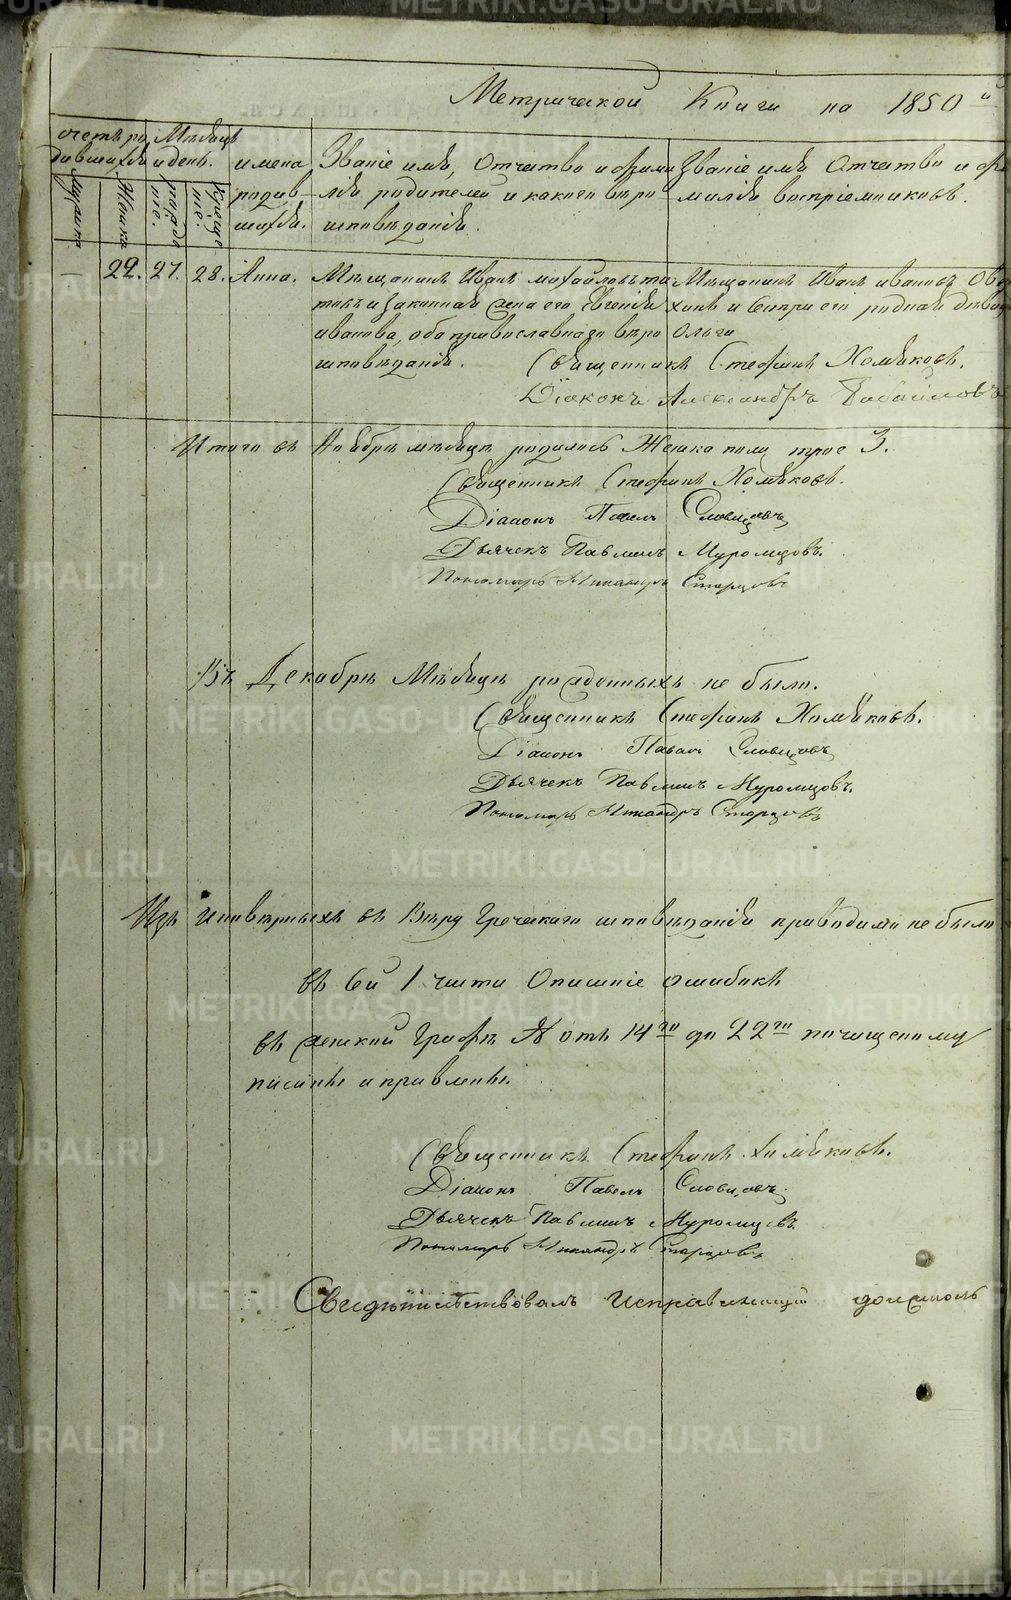 Метрической Книги на 1850й
счетъ ро Мѣсяцъ
дившихся и день. имена Званіе имя, Отчество и фами Званіе имя Отчество и фа
Мужска Женска рожде ніе. Креще ніе. родив- лія родителей и какого вѣро- милія воспріемниковъ.
шихся. исповѣданія.
— 22. 27. 28. Анна. Мѣщанинъ Иванъ Михайловъ Мѣщанинъ Иванъ Ивановъ
и законная жена его Евгенія и сестра его родная дѣвица
Иванова, оба православнаго вѣро Ольга
исповѣданія. Священникъ Стефанъ Хомяковъ.
Діаконъ Александръ
Итого въ Ноябрѣ мѣсяцѣ родилось Женска полу трое 3.
Священникъ Стефанъ Хомяковъ.
Діаконъ Павелъ Словцовъ
Дьячекъ Павлинъ Муромцовъ.
Пономарь Никандръ Старцовъ
Въ Декабрѣ Мѣсяцѣ рожденныхъ не было.
Священникъ Стефанъ Хомяковъ.
Діаконъ Павелъ Словцовъ
Дьячекъ Павлинъ Муромцовъ.
Пономарь Никандръ Старцовъ
Изъ иновѣрныхъ въ Вѣру Греческаго исповѣданія приводимо не было
въ сей 1 части Описаніе ошибокъ
въ женской Графѣ № отъ 14го до 22го почищеному
писаны и правлены.
Священникъ Стефанъ Хомяковъ.
Діаконъ Павелъ Словцовъ
Дьячекъ Павлинъ Муромцовъ
Пономарь Никандръ Старцовъ
Свидѣтельствовалъ Исправляющій должность
METRIKI.GASO-URAL.RU